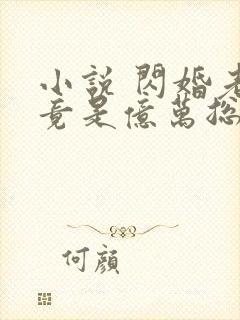 小說 閃婚老
竟是億萬總
何顏